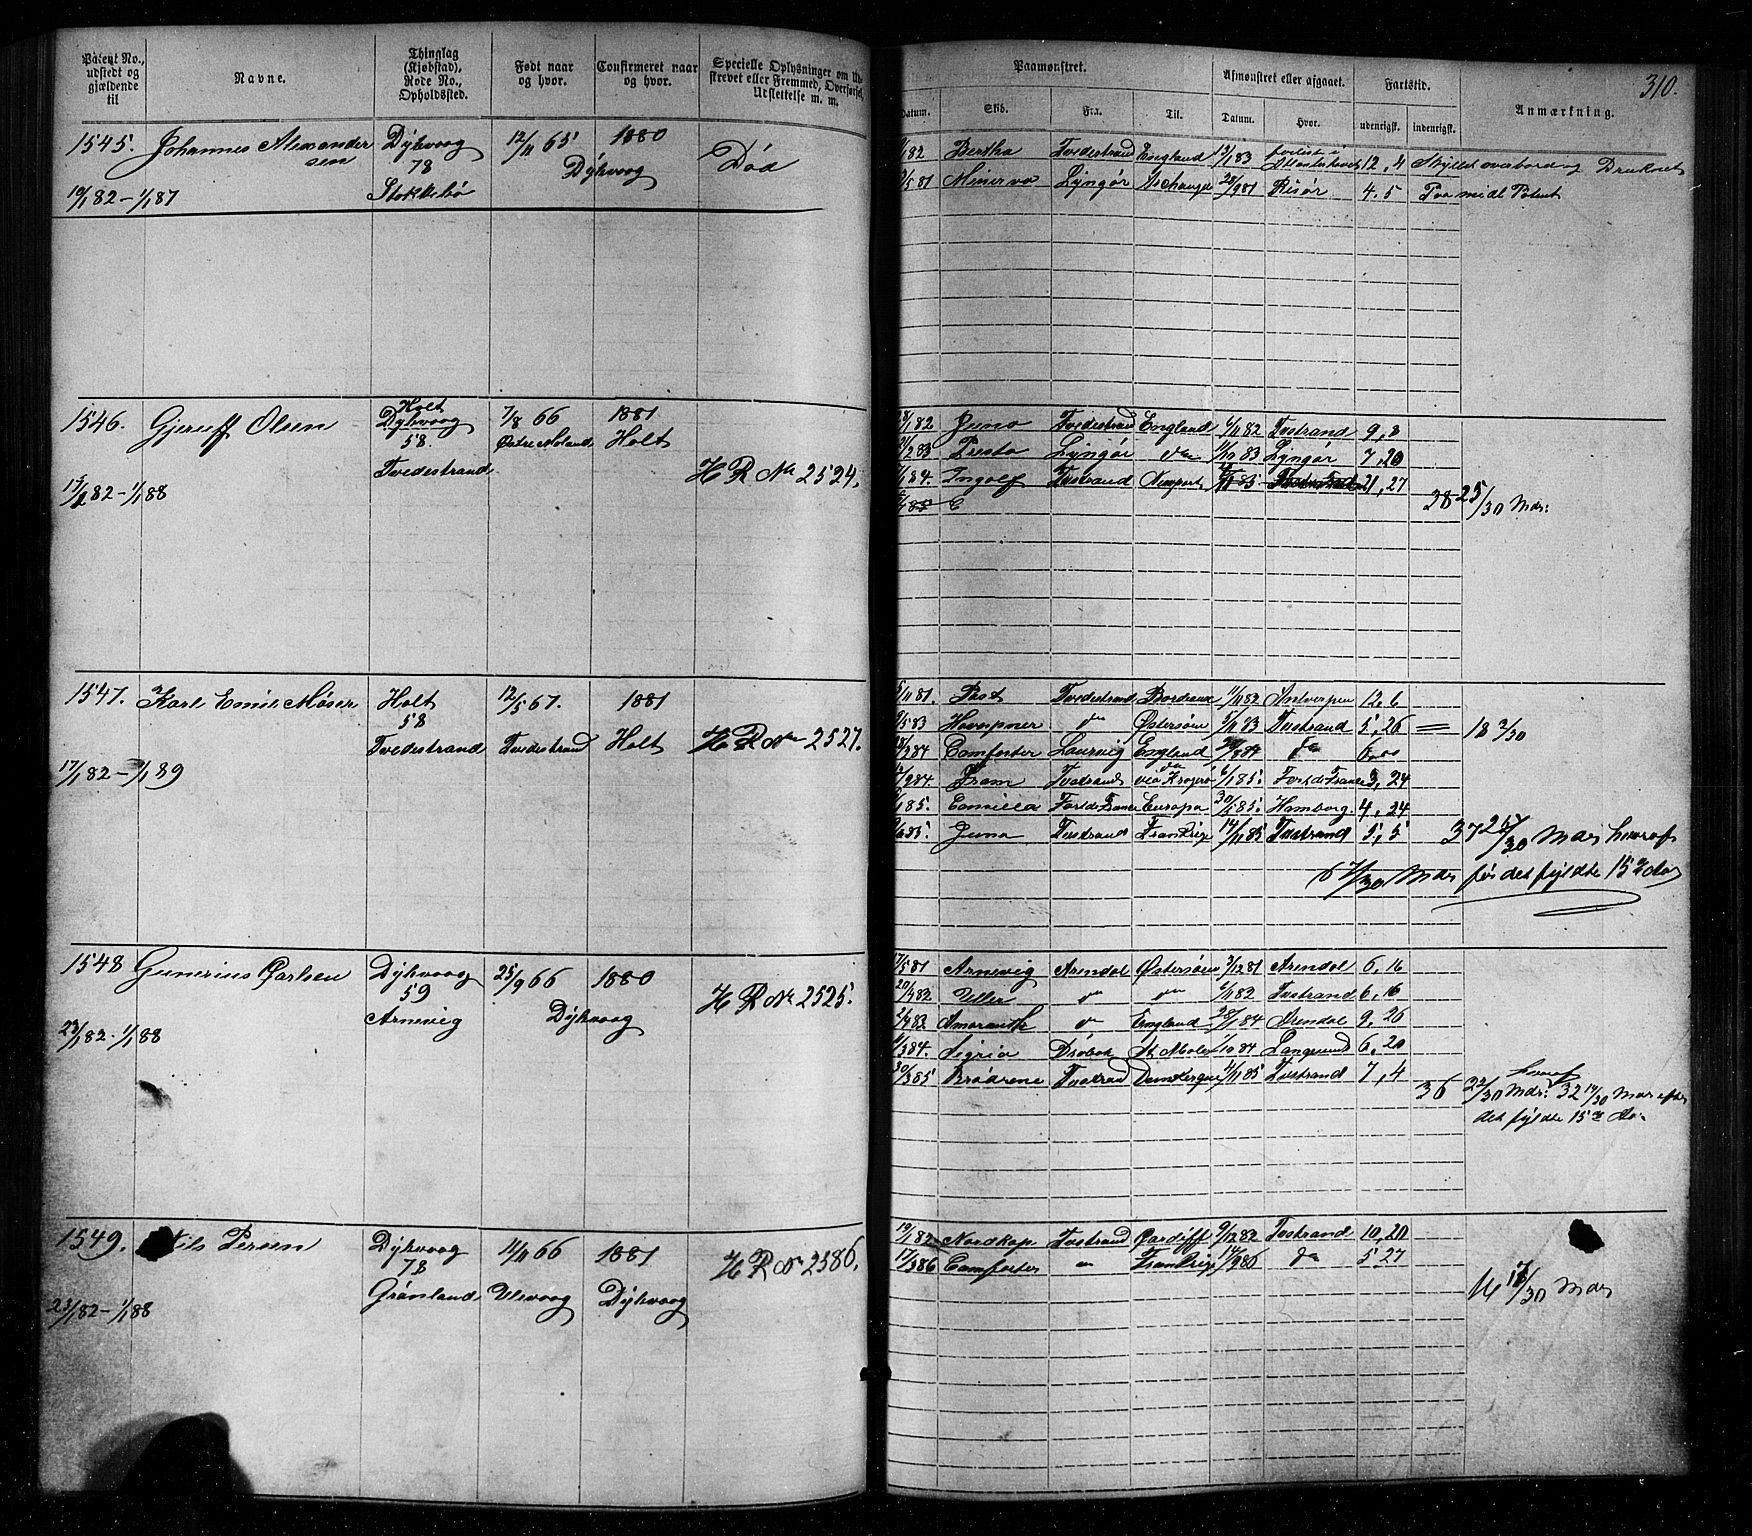 310.
Patent No., udstedt og gjældende til
Navne.
Thinglag (Kjøbstad), Rode No., Opholdssted.
Født naar og hvor.
Confirmeret naar og hvor.
Specielle Oplysninger om
strevet eller Fremmed, Overførsel,
Udslettelse m. m.
Paamønstret.
Afmønstret eller afgaaet.
Fartstid.
Anmærkning.
Datum.
Skib.
Fra.
Til.
Datum.
Hvor.
udenrigsk.
indenrigsk.
1545. Johannes Alexandersen Dÿhvoog 78 Stokkebø 12/11 65 1880 Dÿhvoog Død
19/1 82 – 1/1 87
82 Bertha Tvedestrand England 12/1 83 forlist i 12, 4 Skyllet overbord og Druknet
5 81 Minerva Lyngør 28/9 81 Risør 4, 5 Paa midl Patent
1546. Gjeruff Olsen Holt Dÿhvoog 58. Tvedestrand 7/8 66 Østre Moland 1881 Holt H R No 2524.
1/1 88
82 Juno Tvedestrand England 82 Tvstrand 9, 8
83 Presto Lyngør do 83 Lyngør 7, 20
84. Ingolf Tvstrand Newport 85 21, 27
28 25/30 Mdr:
1547. Karl Emil Møser Holt 58 Tvedestrand 12/5 67. Tvedestrand 1881 Holt H R No 2527.
17/1 82 – 1/1 89
11 81. Post Tvedestrand Bordeaux 11/11 82 Antwerpen 12, 6
5 83 do Østersøen 83 Tvstrand 5, 26 = 18 2/30
3 84 Comforter Laurvig England 84 do
9 84 Fram Tvstrand via Kragerø 6/1 85. Fort de France 3, 24
1 85. Camilla Fort de France Europa 30/5 85. Hamborg. 4, 24
6 85. Juno Tvstrand Frankrige 14/11 85 Tvstrand 5, 5
37 26/30 Mdr hvoraf
6 7/30 Mdr før det fyldte 15de Aar
1548 Gunerius Carlsen Dÿhvoog 59 Arnevig 25/9 66 1880 Dÿhvoog H R No 2525.
23/1 82 - 1/1 88
17/5 81 Arnevig Arendal Østersøen 3/12 81 Arendal 6, 16
20/4 82 Uller do do 82 Tvstrand 6, 16
2/4 83 Amaranth do England 28/1 84 Arendal 9, 26
3 84. Sigrid Drøbak St Malo 10 84 Langesund 6, 20
30/3 85 Brødrene Tvstrand Dunkerque 11 85 Tvstrand 7, 4
36 22/30 Mdr. hvoraf 32 19/30 Mdr efter
det fyldte 15de Aar
1549. Nils Persen Dÿhvoog 78 Grønland 11/11 66 Ulevoog 1881 Dÿhvoog H R No 2386.
23/1 82 – 1/1 88
19/1 82 Nordkap Tvstrand Cardiff 9/12 82 Tvstrand 10, 20
17/3 86 Comforter " Frankrige 14/9 86 do 5 27
16 17/30 Mdr